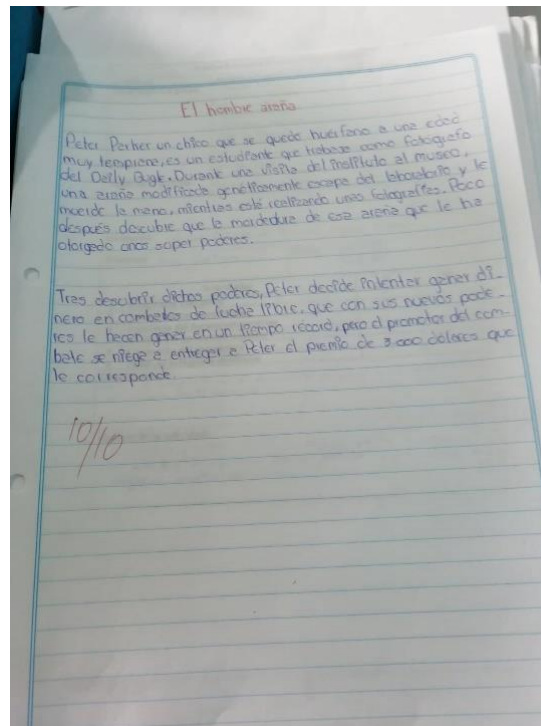 El hombre araña
Peter Parker un chico que se quedo huerfano a una edad
muy temprana, es un estudiante que trabaja como fotografo
del Daily Bugle. Durante una visita del instituto al museo,
una araña modificada genéticamente escapa del laboratorio y le
muerde la mano, mientras está realizando unas fotografías. Poco
después descubre que la mordedura de esa araña que le ha
otorgado unos super poderes.
Tras descubrir dichos poderes, Peter decide intentar ganar di-
nero en combates de lucha libre, que con sus nuevos pode-
res le hacen ganar en un tiempo récord, pero el promotor del com-
bate se niega a entregar a Peter el premio de 3.000 dólares que
le corresponde.
10/10